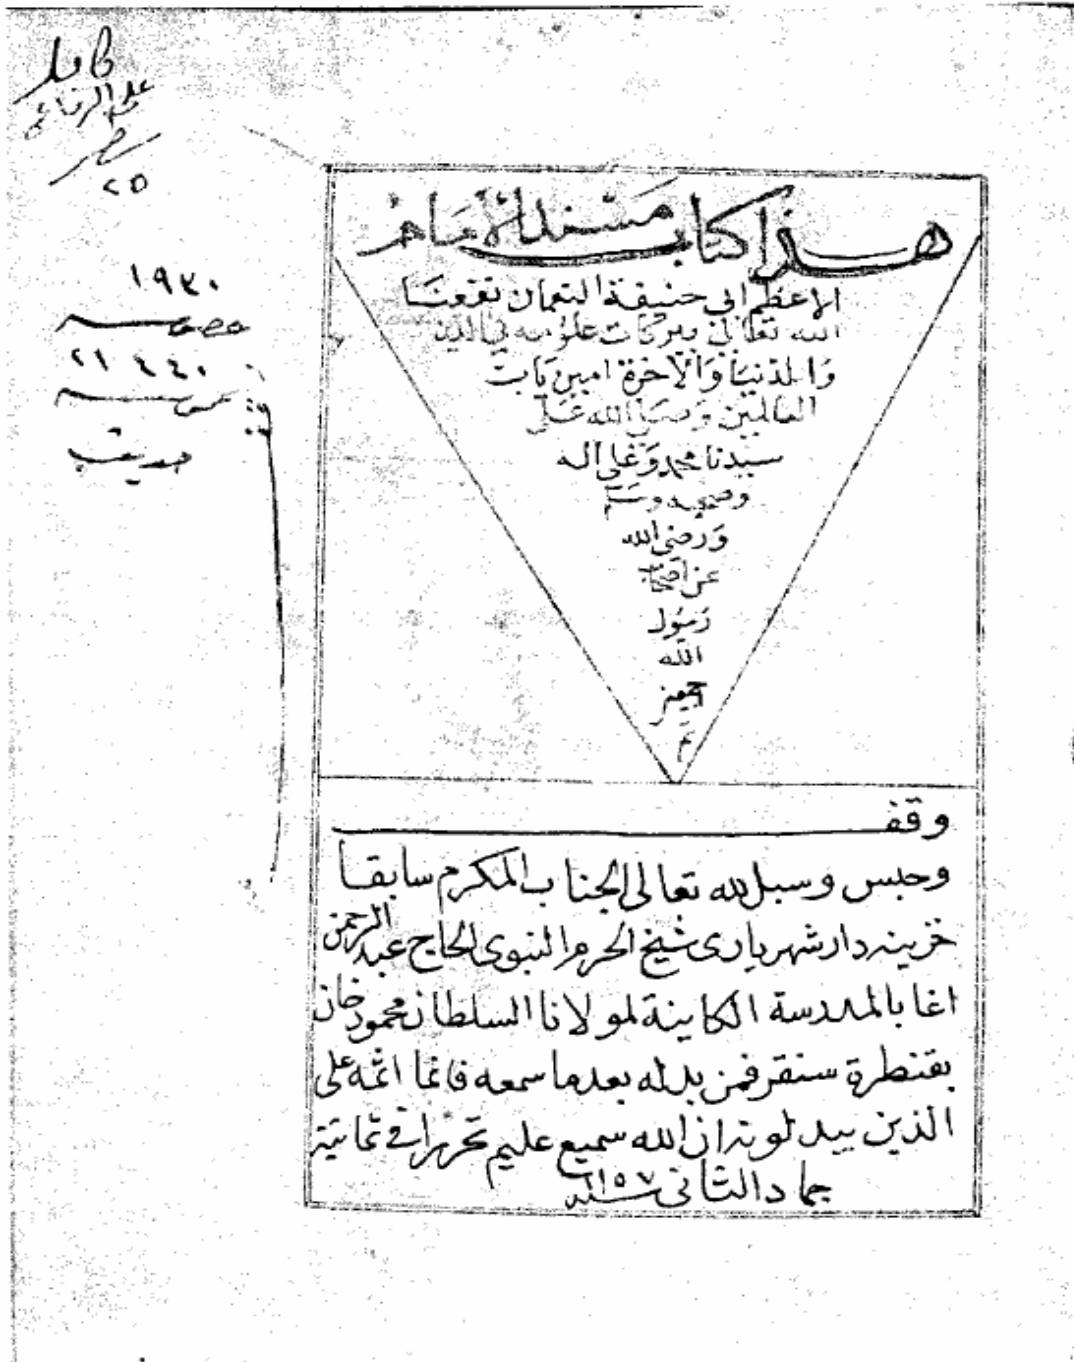 كامل
على الرفاعي
٢٥
١٩٣٠
خصوصية
٢١ ٤٤٠
عمومية
حديث
هذا كتاب مسند الامام
الاعظم ابي حنيفة النعمان نفعنا
الله تعالى ببركات علومه في الدين
والدنيا والاخرة امين يا رب
العالمين وصلى الله على
سيدنا محمد وعلى اله
وصحبه وسلم
ورضى الله
عن اصحاب
رسول
الله
اجمعين
م
وقف
وحبس وسبل لله تعالى الجناب المكرم سابقا
خزينه دار شهريارى شيخ الحرم النبوى الحاج عبد الرحمن
اغا بالمدرسة الكاينة لمولانا السلطان محمود خان
بقنطرة سنقر فمن بدله بعد ما سمعه فانما اثمه على
الذين يبدلونه ان الله سميع عليم تحريرا في ثمانية
جماد الثانى سنة ١١٥٧